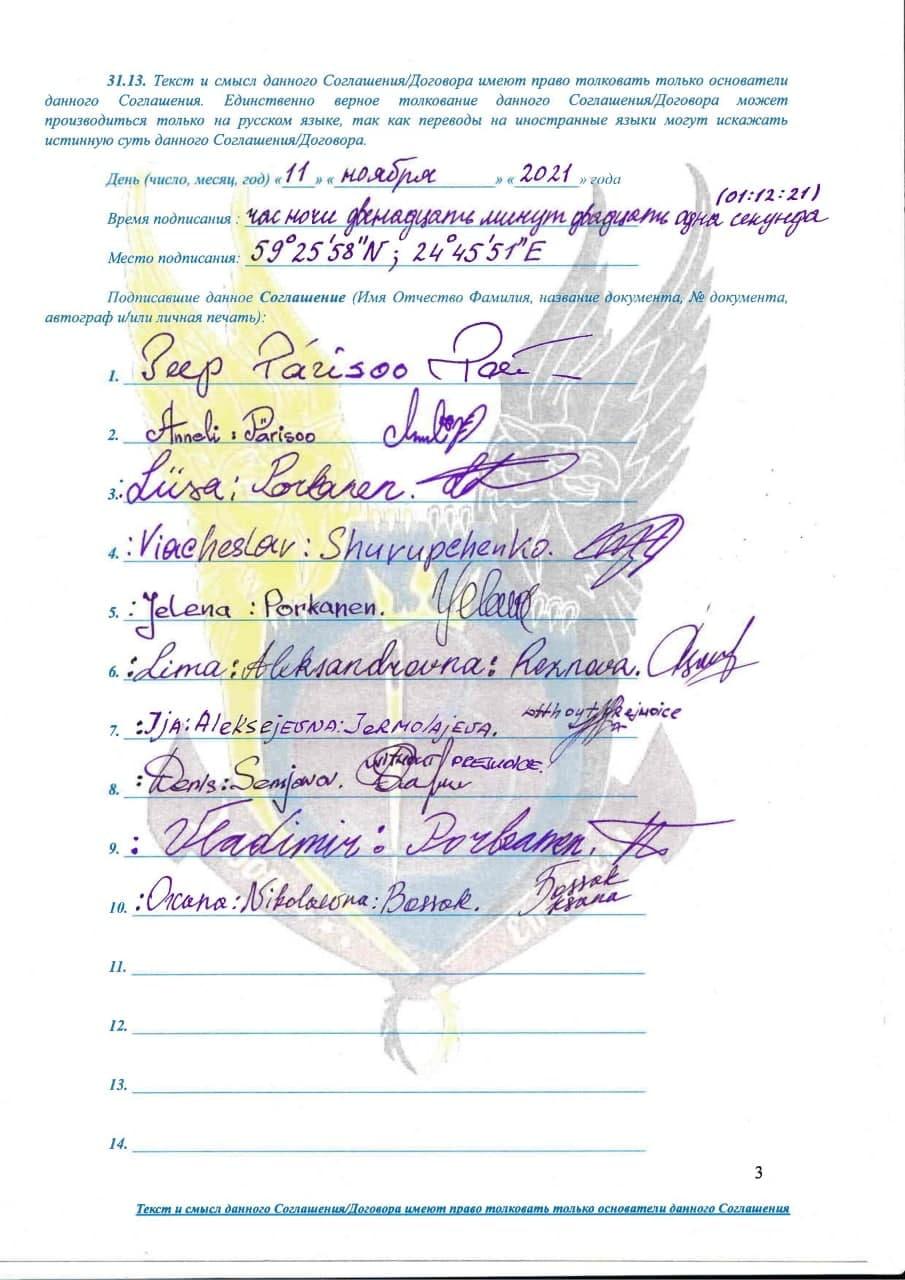 31.13. Текст и смысл данного Соглашения/Договора имеют право толковать только основатели
данного Соглашения. Единственно верное толкование данного Соглашения/Договора может
производиться только на русском языке, так как переводы на иностранные языки могут искажать
истинную суть данного Соглашения/Договора.
День (число, месяц, год) «11» «ноября» «2021» года
(01:12:21)
Время подписания : час ночи двенадцать минут двадцать одна секунда
Место подписания: 59°25'58"N ; 24°45'51"E
Подписавшие данное Соглашение (Имя Отчество Фамилия, название документа, № документа,
автограф и/или личная печать):
1. Peep Pärisoo
2. Anneli : Pärisoo
3. Liisa; Porkanen.
4. :Viacheslav: Shurupchenko.
5. :Jelena :Porkanen.
6. :Lima:Aleksandrovna:
7. :Ija:Aleksejevna:Jermolajeva. without prejudice
8. :Denis:Semjonov. without prejudice.
9. : Vladimir: Porkanen.
10. :Oxana:Nikolaevna:Bossak. Bossak
11.
12.
13.
14.
3
Текст и смысл данного Соглашения/Договора имеют право толковать только основатели данного Соглашения